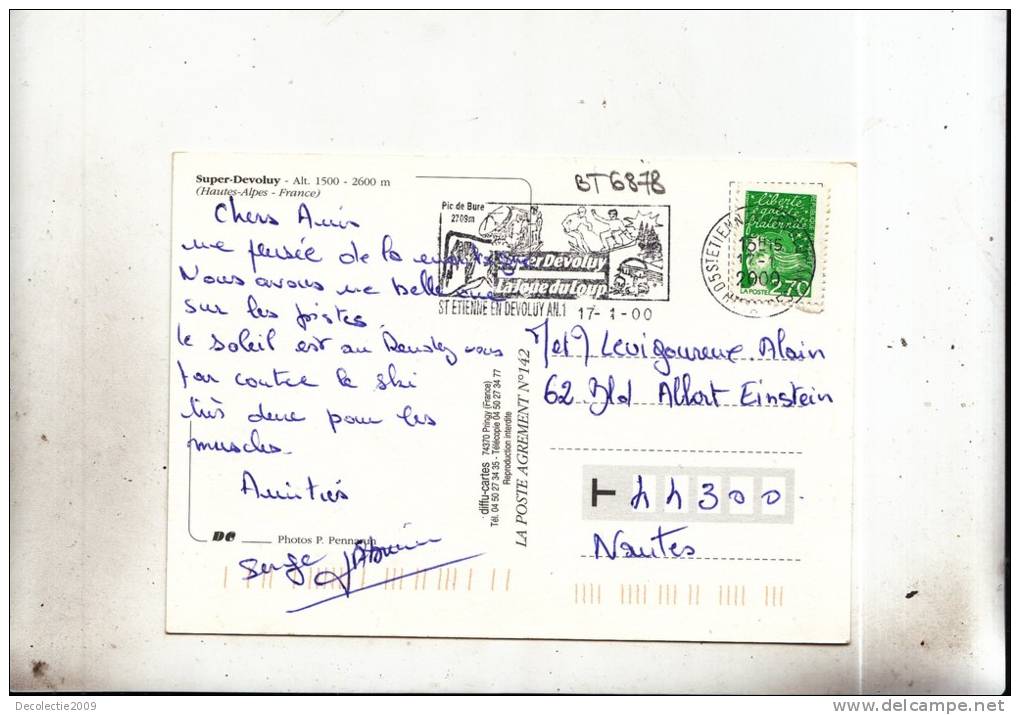 BT6878
Super-Devoluy - Alt. 1500 - 2600 m
(Hautes-Alpes - France)
Chers Amis
une pensée de la montagne
Nous avons une belle vue
sur les pistes.
le soleil est au Rendez vous
par contre le ski
très dure pour les
muscles.
Amitiés
Serge
DC
Photos P. Pennarun
Pic de Bure
2709m
Super Devoluy
La Joue du Loup
ST ETIENNE EN DEVOLUY AN.1 17-1-00
05 ST ETIENNE
2000
liberté
égalité
fraternité
LA POSTE 2,70
diffu-cartes 74370 Pringy (France)
Tél. 04 50 27 34 35 - Télécopie 04 50 27 34 77
Reproduction interdite
LA POSTE AGREMENT N°142
M et M Levigoureux Alain
62 Bld Albert Einstein
T 44300
Nantes
Decolectie2009